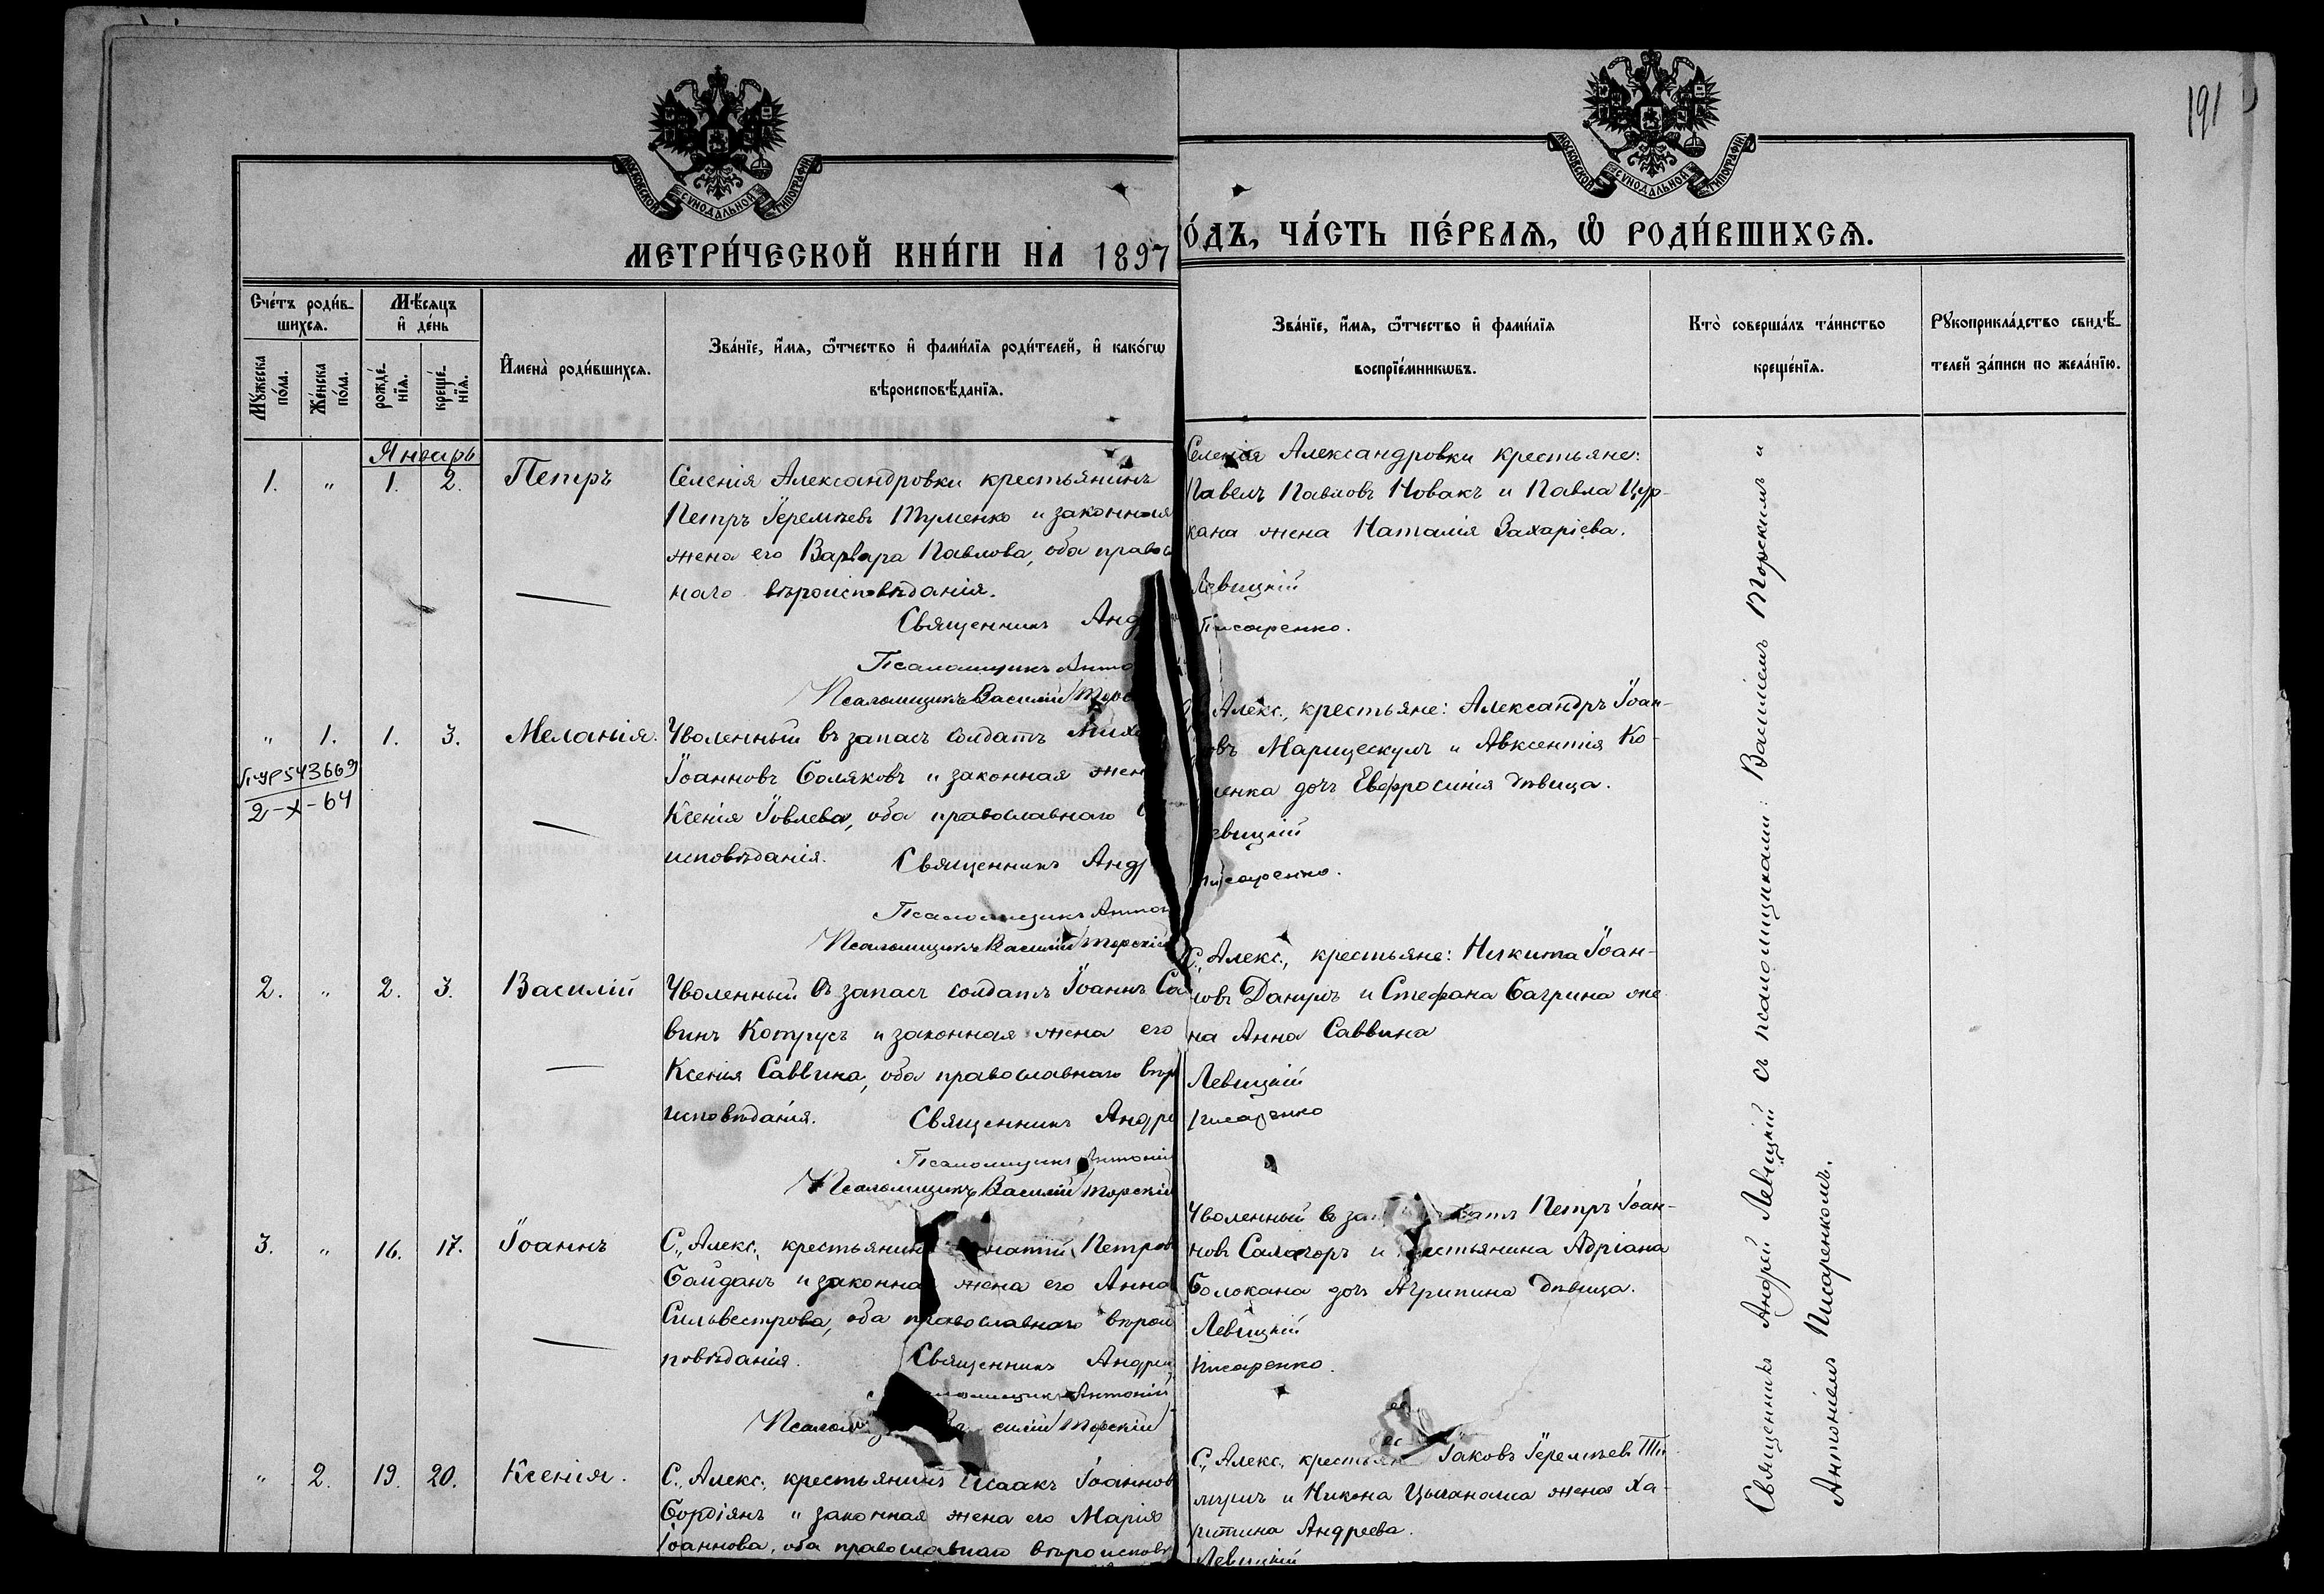 191
МОСКОВСКОЙ СѴНОДАЛЬНОЙ ТИПОГРАФІИ
МОСКОВСКОЙ СѴНОДАЛЬНОЙ ТИПОГРАФІИ
МЕТРИ́ЧЕСКОЙ КНИ́ГИ НА 1897
О́ДЪ, ЧА́СТЬ ПЕ́РВАѦ, Ѿ РОДИ́ВШИХСѦ.
Сче́тъ роди́в-
шихсѧ.
Мꙋ́жеска по́ла.
Же́нска по́ла.
Мѣ́сѧцъ
и҆ де́нь
рожде́-нїѧ.
креще́-нїѧ.
И҆мена̀ роди́вшихсѧ.
Зва́нїе, и҆́мѧ, ѻ҆́тчество и҆ фами́лїѧ роди́телей, и҆ како́гѡ
вѣроисповѣ́данїѧ.
Зва́нїе, и҆́мѧ, ѻ҆́тчество и҆ фами́лїѧ
воспрїе́мникѡвъ.
Кто̀ соверша́лъ та́инство
креще́нїѧ.
Рꙋкоприкла́дство свидѣ́-
телей за́писи по жела́нїю.
Январь
1. " 1. 2. Петръ
Селенія Александровки крестьянинъ
Петръ Іереміевъ Туменко и законная
жена его Варвара Павлова, оба правос
наго вѣроисповѣданія.
Священникъ Анд
Псаломщикъ Анто
Псаломщикъ Василій Торс
Селенія Александровки крестьяне:
Павелъ Павловъ Новакъ и Павла Цур-
кана жена Наталія Захаріева.
Левицкій
Писаренко.
" 1. 1. 3. Меланія.
543669
2-X-64
Уволенный въ запасъ солдатъ Миха
Іоанновъ Боляковъ и законная жен
Ксенія Іовлева, оба православнаго
исповѣданія.
Священникъ Анд
Псаломщикъ Антон
Псаломщикъ Василій Торскій
Алекс., крестьяне: Александръ Іоан-
овъ Марицескулъ и Авксентія Ко-
енка дочь Евфросинія дѣвица.
евицкій
писаренко.
2. " 2. 3. Василій
Уволенный въ запасъ солдатъ Іоаннъ Са
винъ Котрусъ и законная жена его
Ксенія Саввина, оба православнаго вѣр
исповѣданія.
Священникъ Андре
Псаломщикъ Антоній
Псаломщикъ Василій Торскій
С., Алекс., крестьяне: Никита Іоан-
новъ Данулъ и Стефана Багрина же
на Анна Саввина
Левицкій
Писаренко
3. " 16. 17. Іоаннъ
С., Алекс., крестьянинъ натій Петров
Байданъ и законная жена его Анна
Сильвестрова, оба православнаго вѣрои
повѣданія.
Священникъ Андрей
омщикъ Антоній
Псалом силій Торскій
Уволенный въ за атъ Петръ Іоан-
новъ Салагоръ и стьянина Адріана
Болокана дочь Агрипина дѣвица.
Левицкій
Писаренко.
" 2. 19. 20. Ксенія.
С., Алекс., крестьянинъ Исаакъ Іоаннов
Бордіянъ и законная жена его Марія
Іоаннова, оба православнаго вѣроисповѣ
С., Алекс., крестьян Іаковъ Іереміев
и Никона жена Ха-
ритина Андреева.
Левицкій
Священникъ Андрей Левицкій съ псаломщиками: Василіемъ Торскимъ и
Антоніемъ Писаренкомъ.